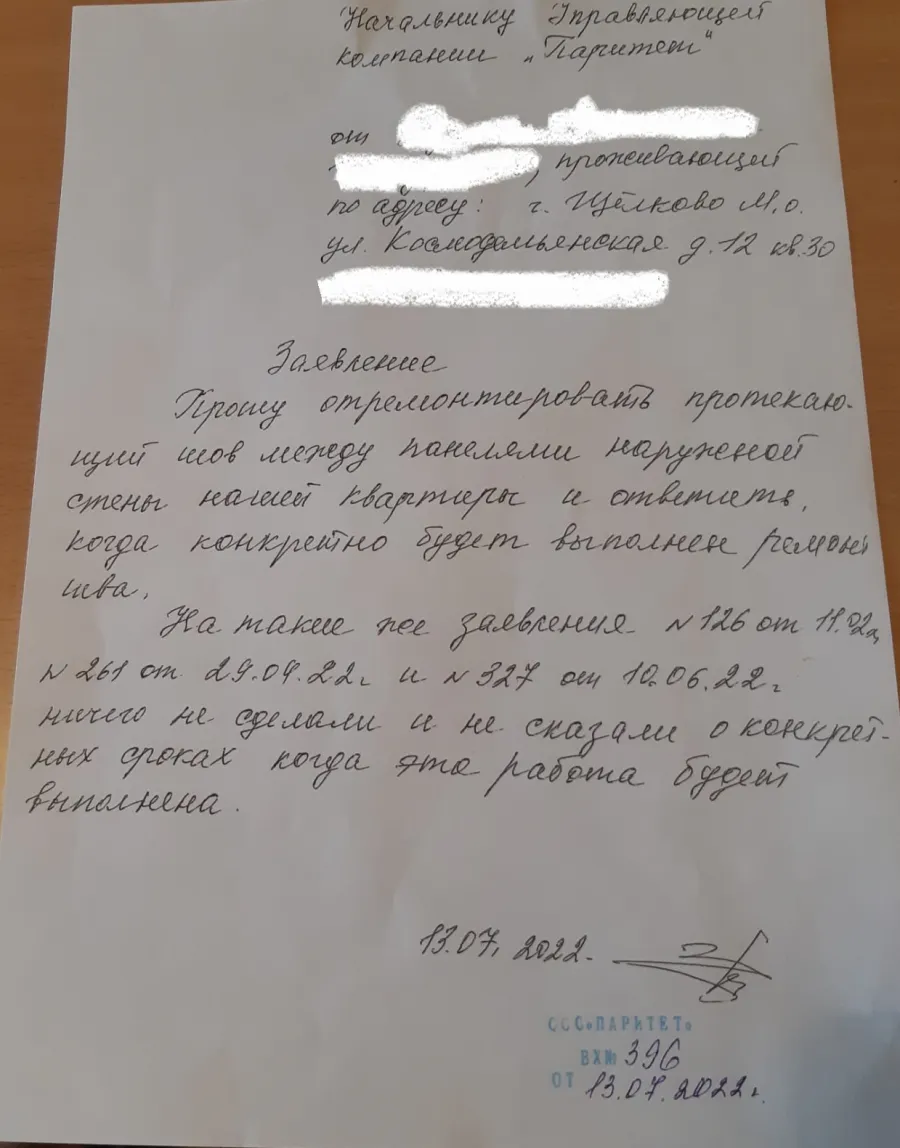 Начальнику Управляющей
компании „Паритет"
от
, проживающей
по адресу: г. Щёлково М.о.
ул. Космодемьянская д.12 кв.30
Заявление
Прошу отремонтировать протекаю-
щий шов между панелями наружной
стены нашей квартиры и ответить,
когда конкретно будет выполнен ремонт
шва.
На такие же заявления N126 от 11.02
N 261 от 29.04.22г и N 327 от 10.06.22г
ничего не сделали и не сказали о конкрет-
ных сроках когда эта работа будет
выполнена.
13.07.2022.
ООО«ПАРИТЕТ»
ВХ№ 396
ОТ 13.07.2022г.